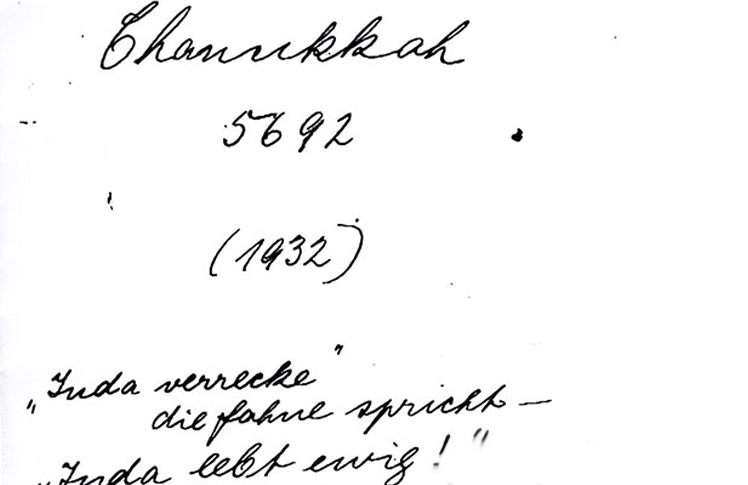 Chanukkah
5692
(1932)
„Juda verrecke"
die Fahne spricht –
„Juda lebt ewig!"